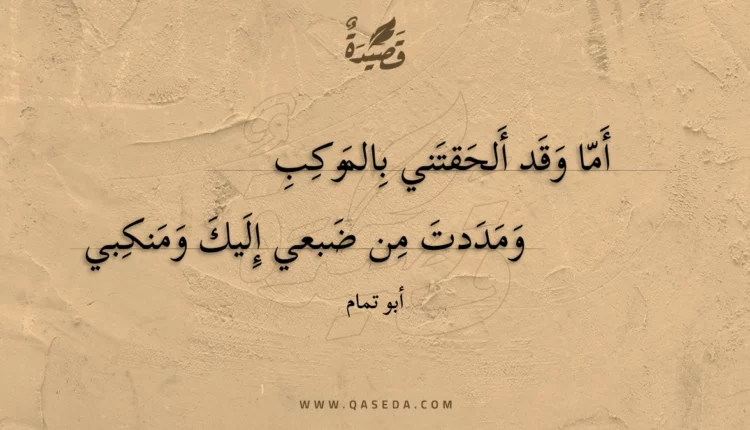 قَصِيدَةٌ
أَمّا وَقَد أَلحَقتَني بِالمَوكِبِ
وَمَدَدتَ مِن ضَبعي إِلَيكَ وَمَنكِبي
أبو تمام
WWW.QASEDA.COM